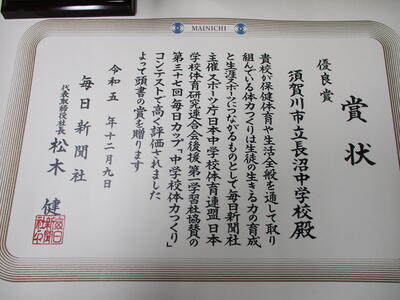 MAINICHI
賞状
優良賞
須賀川市立長沼中学校殿
貴校が保健体育や生活全般を通して取り
組んでいる体力つくりは生徒の生きる力の育成
と生涯スポーツにつながるものとして毎日新聞社
主催 スポーツ庁日本中学校体育連盟 日本
学校体育研究連合会後援 第一学習社協賛の
第三十七回毎日カップ「中学校体力つくり」
コンテストで高く評価されました
よって頭書の賞を贈ります
令和五年十二月九日
毎日新聞社
代表取締役社長 松木 健